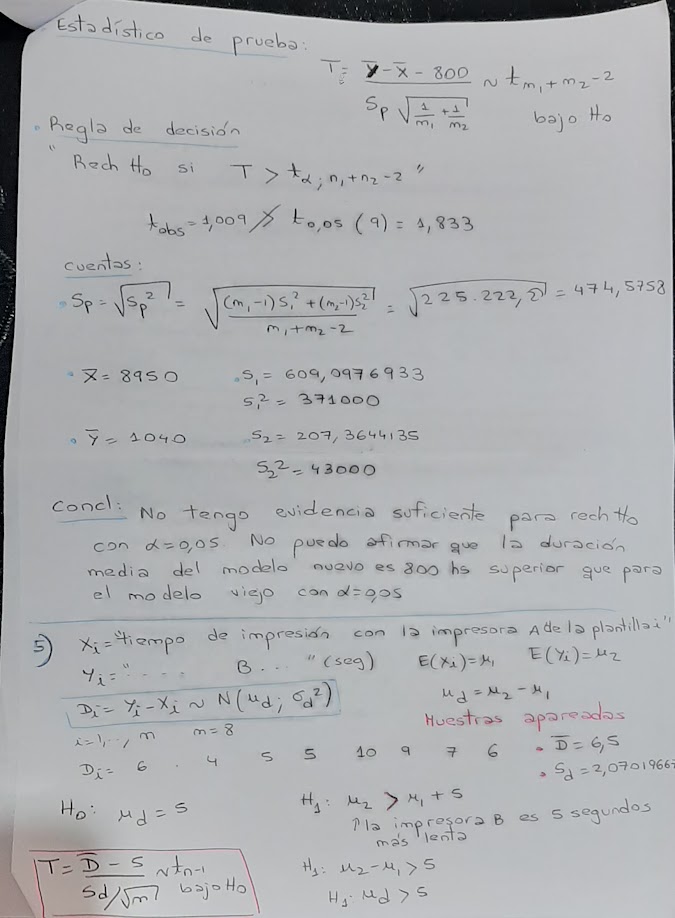 Estadístico de prueba:
T = (Y̅ - X̅ - 800) / (Sp √(1/m₁ + 1/m₂)) ~ t m₁+m₂-2 bajo Ho
• Regla de decisión
"Rech Ho si T > tα; n₁+n₂-2"
tobs = 1,009 ≯ t0,05 (9) = 1,833
Cuentas:
• Sp = √Sp² = √(((m₁-1)S₁² + (m₂-1)S₂²) / (m₁+m₂-2)) = √225.222,2̂ = 474,5758
• X̅ = 8950 • S₁ = 609,0976933
S₁² = 371000
• Y̅ = 1040 • S₂ = 207,3644135
S₂² = 43000
Concl: No tengo evidencia suficiente para rech Ho
con α=0,05. No puedo afirmar que la duración
media del modelo nuevo es 800 hs superior que para
el modelo viejo con α=0,05
5) Xi = "tiempo de impresión con la impresora A de la plantilla i"
Yi = " . . . . B . . . " (seg) E(Xi) = μ₁ E(Yi) = μ₂
Di = Yi - Xi ~ N(μd; σd²) μd = μ₂ - μ₁
Muestras apareadas
i = 1, ..., n m = 8
Di = 6 . 4 5 5 10 9 7 6 • D̅ = 6,5
• Sd = 2,07019667
Ho: μd = 5 H₁: μ₂ > μ₁ + 5
↑ la impresora B es 5 segundos
más lenta
T = (D̅ - 5) / (Sd/√n) ~ tn-1 bajo Ho
H₁: μ₂ - μ₁ > 5
H₁: μd > 5